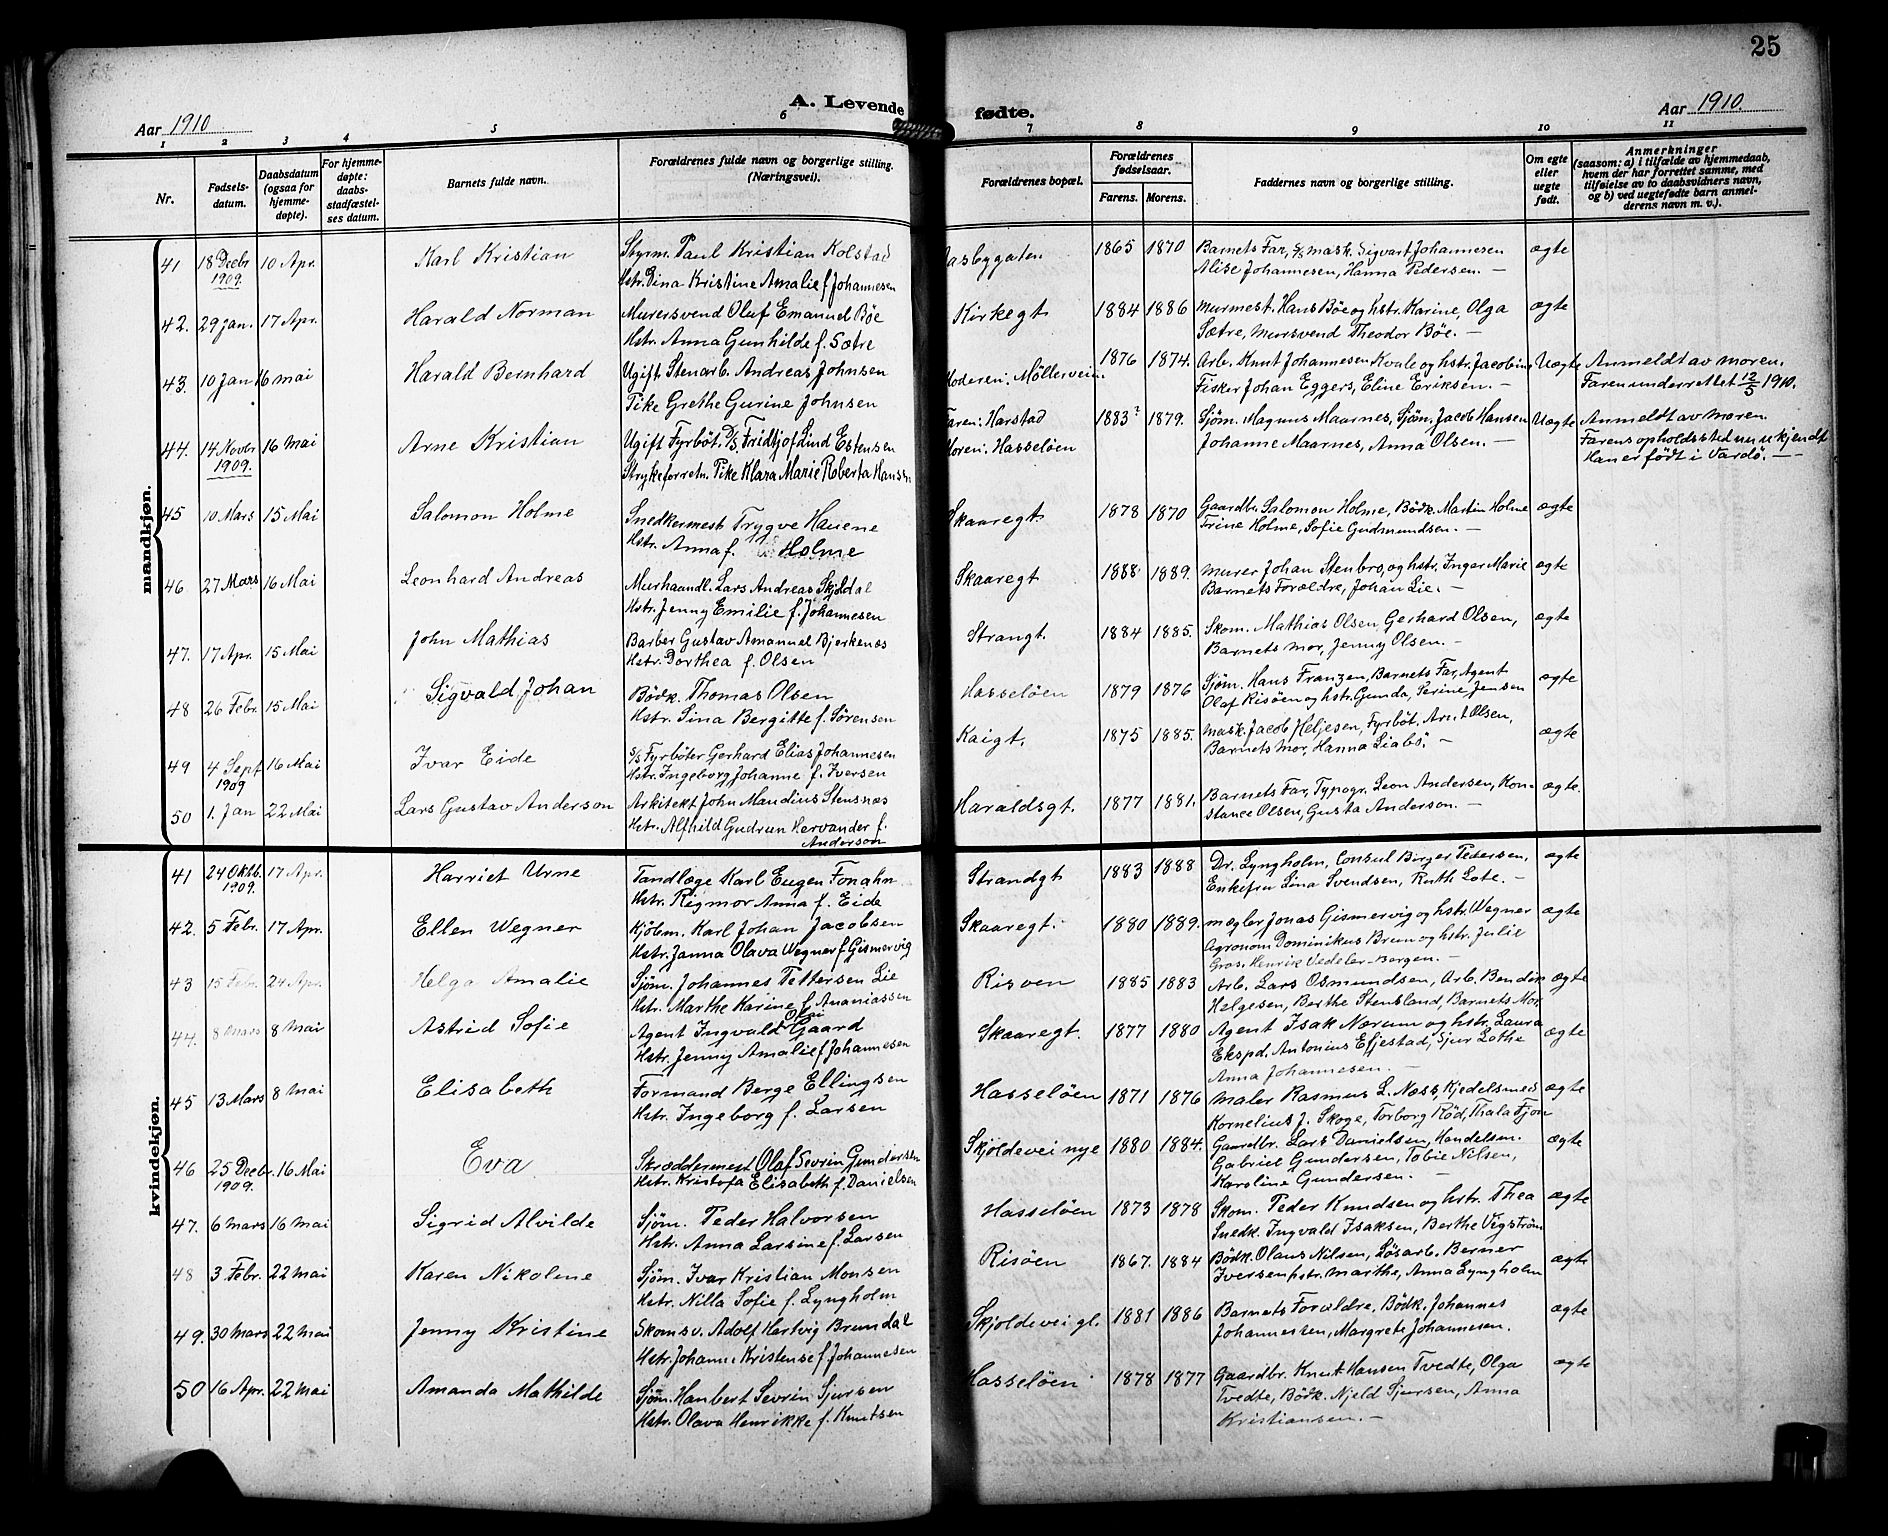 25
A. Levende fødte.
Aar 1910
Aar 1910.
1 2 3 4 5 6 7 8 9 10 11
Nr.
Fødsels-
datum.
Daabsdatum
(ogsaa for
hjemme-
døpte).
For hjemme-
døpte:
daabs-
stadfæstel-
ses datum.
Barnets fulde navn.
Forældrenes fulde navn og borgerlige stilling.
(Næringsvei).
Forældrenes bopæl.
Forældrenes
fødselsaar.
Farens. Morens.
Faddernes navn og borgerlige stilling.
Om egte
eller
uegte
født.
Anmerkninger
(saasom: a) i tilfælde av hjemmedaab,
hvem der har forrettet samme, med
tilføielse av to daabsvidners navn,
og b) ved uegtefødte barn anmel-
derens navn m. v.).
mandkjøn.
41 18 Decbr 10 Apr. Karl Kristian Styrm. Paul Kristian Kolstad Aasbygaten 1865 1870 Barnets Far, S/S mask. Sigvart Johannesen ægte
1909. Hstr. Dina Kristine Amalie f Johannesen Alise Johannesen, Hanna Pedersen. —
42. 29 Jan. 17 Apr. Harald Norman Murersvend Oluf Emanuel Bøe Kirkegt 1884 1886 Murmest. Hans Bøe og hstr. Karine, Olga ægte
Hstr. Anna Gunhilde f. Sætre Sætre, Mursvend Theodor Bøe. —
43. 10 Jan 16 mai Harald Bernhard Ugift Stenarb. Andreas Johnsen Moderen: Møllerveien. 1876 1874. Arb. Knut Johannesen Kvale og hstr. Jacobine Uegte Anmeldt av moren.
Pike Grethe Gurine Johnsen Fisker Johan Eggers, Eline Eriksen. — Faren underrettet 12/5 1910.
44. 14 Novbr 16 mai Arne Kristian Ugift Fyrbøt. D/S. Fridtjof Lind Estensen Faren: Harstad 1883? 1879. Sjøm. Magnus Maarnes, Sjøm. Jacob Hansen Uegte Anmeldt av moren
1909. Strykeforretn. Pike Klara Marie Roberta Hansen Moren: Hasseløen Johanne Maarnes, Anna Olsen. — Farens opholdssted nu ukjendt
Han er født i Vardø. —
45 10 Mars 15 Mai Salomon Holme Snedkermest Trygve Hauene Skaaregt. 1878 1870 Gaardbr. Salomon Holme, Bødk. Martin Holme ægte
Hstr. Anna f. Holme Trine Holme, Sofie Gudmundsen. —
46 27 Mars 16 Mai Leonhard Andreas Murhaandl. Lars Andreas Skjoldal Skaaregt 1888 1889. Murer Johan Stenbro, og hstr. Inger Marie ægte
Hstr. Jenny Emilie f. Johannesen Barnets Forældre, Johan Lie. —
47. 17 Apr. 15 Mai John Mathias Barber Gustav Amanuel Bjerkenæs Strangt. 1884 1885. Skom. Mathias Olsen Gerhard Olsen, ægte
Hstr. Dorthea f. Olsen Barnets Mor, Jenny Olsen. —
48 26 Febr. 15 Mai Sigvald Johan Bødk. Thomas Olsen Hasseløen 1879 1876 Sjøm. Hans Franzen, Barnets Far, Agent ægte
Hstr. Sina Bergitte f. Sørensen Olaf Risøen og hstr. Gunda, Serine Jensen
49 4 Sept 16 Mai Ivar Eide S/S Fyrbøter Gerhard Elias Johannesen Kaigt. 1875 1885. Mask. Jacob Heljesen, Fyrbøt. Olsen, ægte
1909 Hstr. Ingeborg Johanne f. Iversen Barnets Mor, Hanna Liabø. —
50 1. Jan 22 Mai Lars Gustav Anderson Arkitekt John Maudius Stensnæs Haraldsgt. 1877 1881. Barnets Far, Typogr. Leon Andersen, Kon- ægte.
Hstr. Alfhild Gudrun Hervander f. stance Olsen, Gusta Anderson. —
Anderson
kvindekjøn.
41 24 Oktb. 17 Apr. Harriet Urne Tandlæge Karl Eugen Fonahn Strandgt 1883 1888 Dr. Lyngholm, Consul Birger Pedersen, ægte
1909. Hstr. Rigmor Anna f. Eide Enkefru Lina Svendsen, Ruth Lote. —
42. 5 Febr. 17 Apr. Ellen Wegner Kjøbm. Karl Johan Jacobsen Skaaregt. 1880 1889. Mægler Jonas Gismervig og hstr. Wegner ægte
Hstr. Janna Olava Wegner f Gismervig Agronom Dominikus Brun og hstr. Julie
Gros. Henrik Vedeler-Bergen. —
43 15 Febr. 24 Apr. Helga Amalie Sjøm. Johannes Pettersen Lie Risøen 1885 1883 Arb. Lars Osmundsen, Arb. Bendix ægte
Hstr. Marthe Karine f. Ananiassen Helgesen, Berthe Stensland, Barnets Mor.
44. 8 mars 8 mai Astrid Sofie Agent Ingvald Olai Gaard Skaaregt. 1877 1880 Agent Isak Nærum og hstr. Laura ægte
Hstr. Jenny Amalie f Johannesen Ekspd. Antonius Efjestad, Sjur Lothe
Anna Johannesen. —
45 13 Mars 8 mai Elisabeth Formand Berge Ellingsen Hasseløen 1871 1876 Maler Rasmus L. Næss, Kjedelsmed ægte
Hstr. Ingeborg f. Larsen Kornelius J. Skoge, Torborg Rød, Thala Fjon
46 25 Decbr. 16 Mai Eva Skræddermest Olaf Sevrin Gundersen Skjoldevei nye 1880 1884. Gaardbr. Lars Danielsen, Handelsm. ægte
1909. Hstr. Kristofa Elisabeth f. Danielsen Gabriel Gundersen, Tobie Nilsen,
Karoline Gundersen. —
47. 6 mars 16 mai Sigrid Alvilde Sjøm. Peder Halvorsen Hasseløen 1873 1878 Skom. Peder Knudsen og hstr. Thea ægte
Hstr. Anna Larsine f. Larsen Snedk. Ingvald Isaksen, Berthe Vigstrøm
48 3 Febr. 22 mai Karen Nikoline Sjøm. Ivar Kristian Monsen Risøen 1867. 1884 Bødk. Olaus Nilsen, Løsarb. Berner ægte
Hstr. Nilla Sofie f. Lyngholm Iversen hstr. Marthe, Anna Lyngholm
49. 30 mars 22 mai Jenny Kristine Skomsv. Adolf Hartvig Brundal Skjoldevei gl. 1881 1886 Barnets Forældre, Bødk. Johannes ægte
Hstr. Johanne Kristense f Johannesen Johannessen, Margrete Johannesen.
50 16 Apr. 22 mai Amanda Mathilde Sjøm. Hanbert Sevrin Sjursen Hasseløen 1878 1877 Gaardbr. Knut Hansen Tvedte, Olga ægte
Hstr. Olava Henrikke f. Knutsen Tvedte, Bødk. Njeld Sjursen, Anna
Kristiansen. —